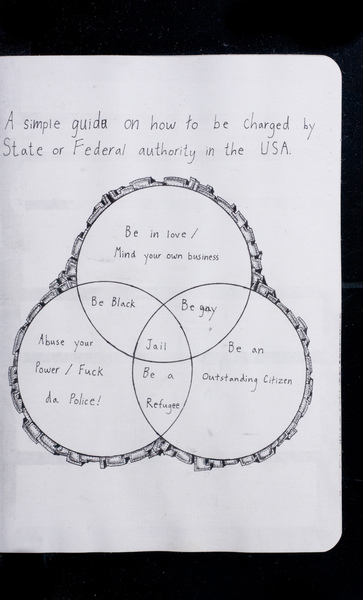 A simple guide on how to be charged by
State or Federal authority in the USA.
Be in love /
Mind your own business
Be Black
Be gay
Abuse your
Power / Fuck
da Police!
Jail
Be an
Outstanding Citizen
Be a
Refugee